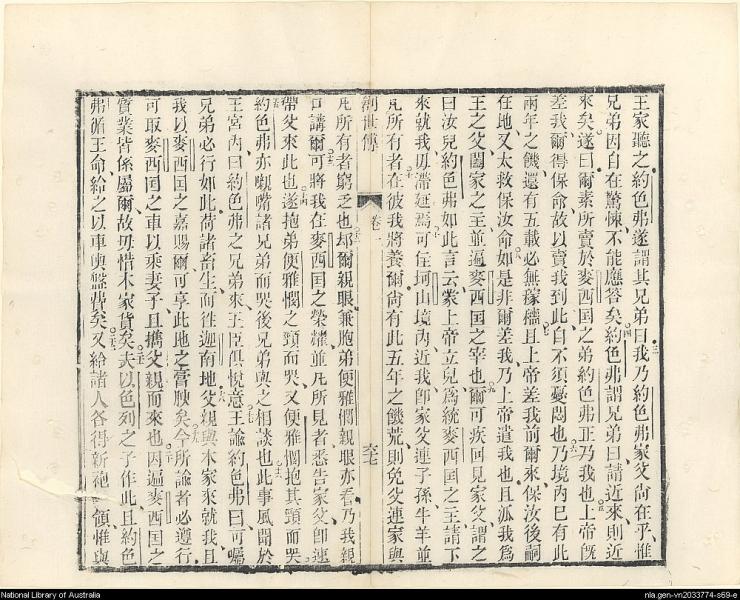 王家聽之約色弗遂謂其兄弟曰我乃約色弗家父尚在乎惟
兄弟因自在驚悚不能應答矣約色弗謂兄弟曰請近來則近
來矣遂曰爾素所賣於麥西國之弟約色弗正乃我也上帝旣
差我爾得保命故以賣我到此自不須憂悶也乃境內已有此
兩年之饑還有五載必無稼穡且上帝差我前爾來保汝後嗣
在地又太救保汝命如是非爾差我乃上帝遣我也且派我為
王之父闔家之主並遍麥西国之宰也爾可疾回見家父謂之
曰汝兒約色弗如此言云蒙上帝立兒為統麥西国之主請下
來就我毋滯延焉可住坷山境內近我卽家父連子孫牛羊並
凡所有者在彼我將養爾尙有此五年之饑荒則免父連家與
創世傳
卷一
六七
凡所有者窮乏也却爾親眼兼胞弟便雅憫親眼亦看乃我親
口講爾可將我在麥西国之榮耀並凡所見者悉告家父卽連
帶父來此也遂抱弟便雅憫之頸而哭又便雅憫抱其頸而哭
約色弗亦嘴諸兄弟而哭後兄弟與之相談也此事風聞於
王宮內曰約色弗之兄弟來王臣俱悅意王諭約色弗曰可囑
兄弟必行如此荷諸畜生而徃迦南地父親與本家來就我且
我以麥西国之嘉賜爾可享此地之膏腴矣今所諭者必遵行
可取麥西国之車以乘妻子且攜父親而來也因遍麥西国之
寶業皆係屬爾故毋惜本家貨矣夫以色列之子作此且約色
弗循王命給之以車與盤費矣又給諸人各得新袍一領惟與
National Library of Australia
nla.gen-vn2033774-s69-e